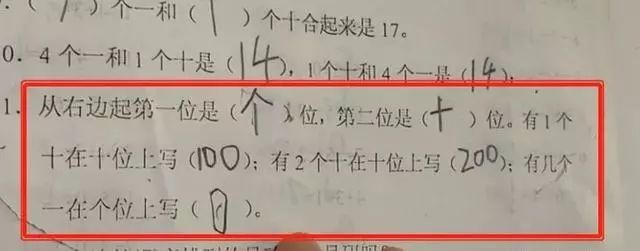 ）个一和（1）个十合起来是17。
0. 4个一和1个十是（14），1个十和4个一是（14）；
1. 从右边起第一位是（个）位，第二位是（十）位。有1个
十在十位上写（100）；有2个十在十位上写（200）；有几个
一在个位上写（0）。